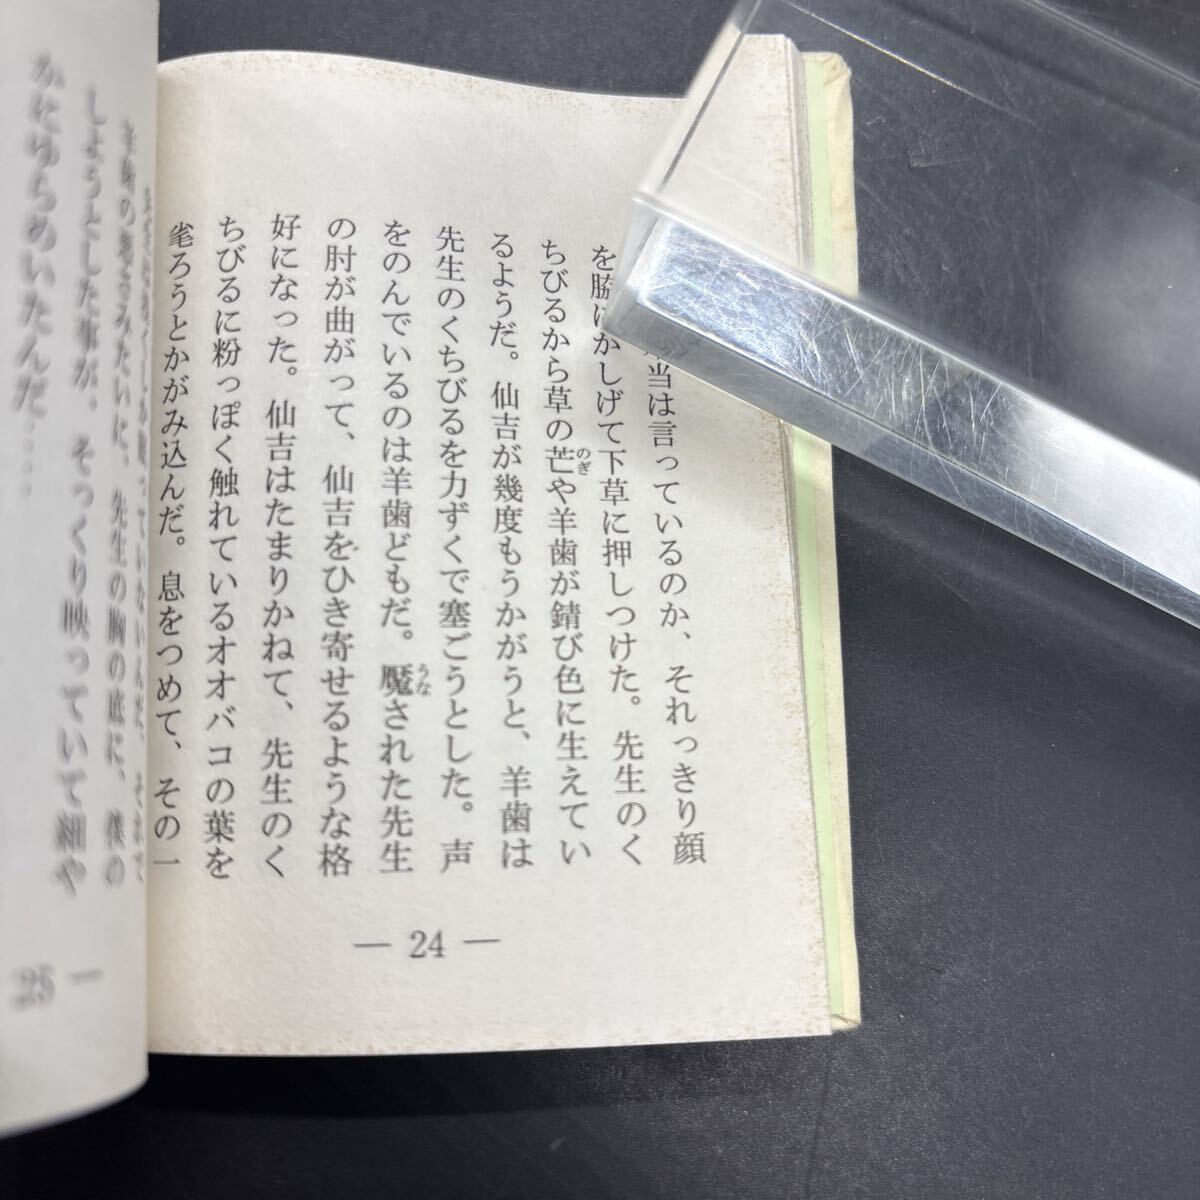 当は言っているのか、それっきり顔
を脇にかしげて下草に押しつけた。先生のく
ちびるから草の芒や羊歯が錆び色に生えてい
のぎ
るようだ。仙吉が幾度もうかがうと、羊歯は
先生のくちびるを力ずくで塞ごうとした。声
をのんでいるのは羊歯どもだ。魘された先生
うな
の肘が曲がって、仙吉をひき寄せるような格
好になった。仙吉はたまりかねて、先生のく
ちびるに粉っぽく触れているオオバコの葉を
毟ろうとかがみ込んだ。息をつめて、その一
— 24 —
っていないんだ、それで
みたいに、先生の胸の底に、僕の
しようとした事が、そっくり映っていて細や
かにゆらめいたんだ……
25 —